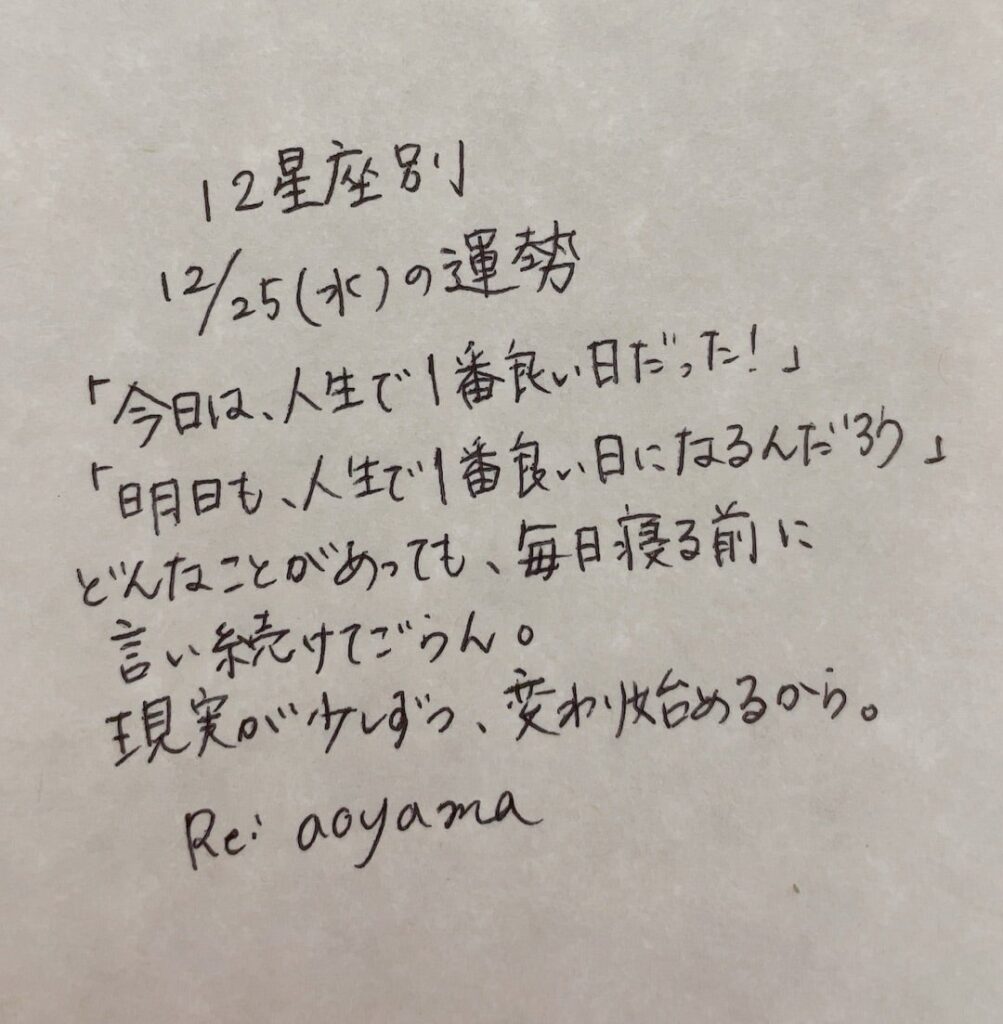 12星座別
12/25(水)の運勢
「今日は、人生で1番良い日だった!」
「明日も、人生で1番良い日になるんだろう」
どんなことがあっても、毎日寝る前に
言い続けてごらん。
現実が少しずつ、変わり始めるから。
Rei aoyama